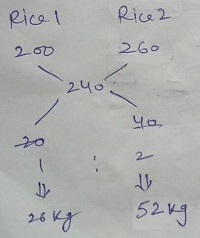 Rice 1 Rice 2
200 260
240
20 40
1 : 2
⇓ ⇓
26 kg 52 kg